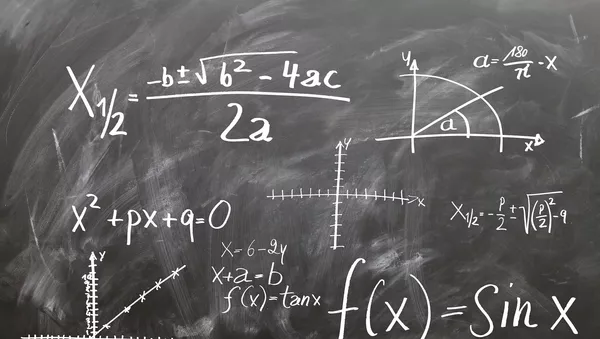 X₁/₂ = (-b ± √(b² - 4ac)) / 2a
y
a = 180/π - x
a
x
y
x
x² + px + q = 0
X₁/₂ = -p/2 ± √((p/2)² - q)
x = 6 - 2y
x + a = b
f(x) = tanx
y
f(x) = Sin x